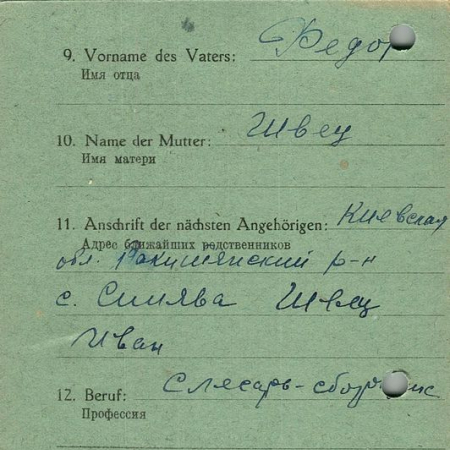 9. Vorname des Vaters: Федор
Имя отца
10. Name der Mutter: Швец
Имя матери
11. Anschrift der nächsten Angehörigen: Киевская
Адрес ближайших родственников
обл. Ракитянский р-н
с. Синява Швец
Иван
12. Beruf: Слесарь-сборщик
Профессия